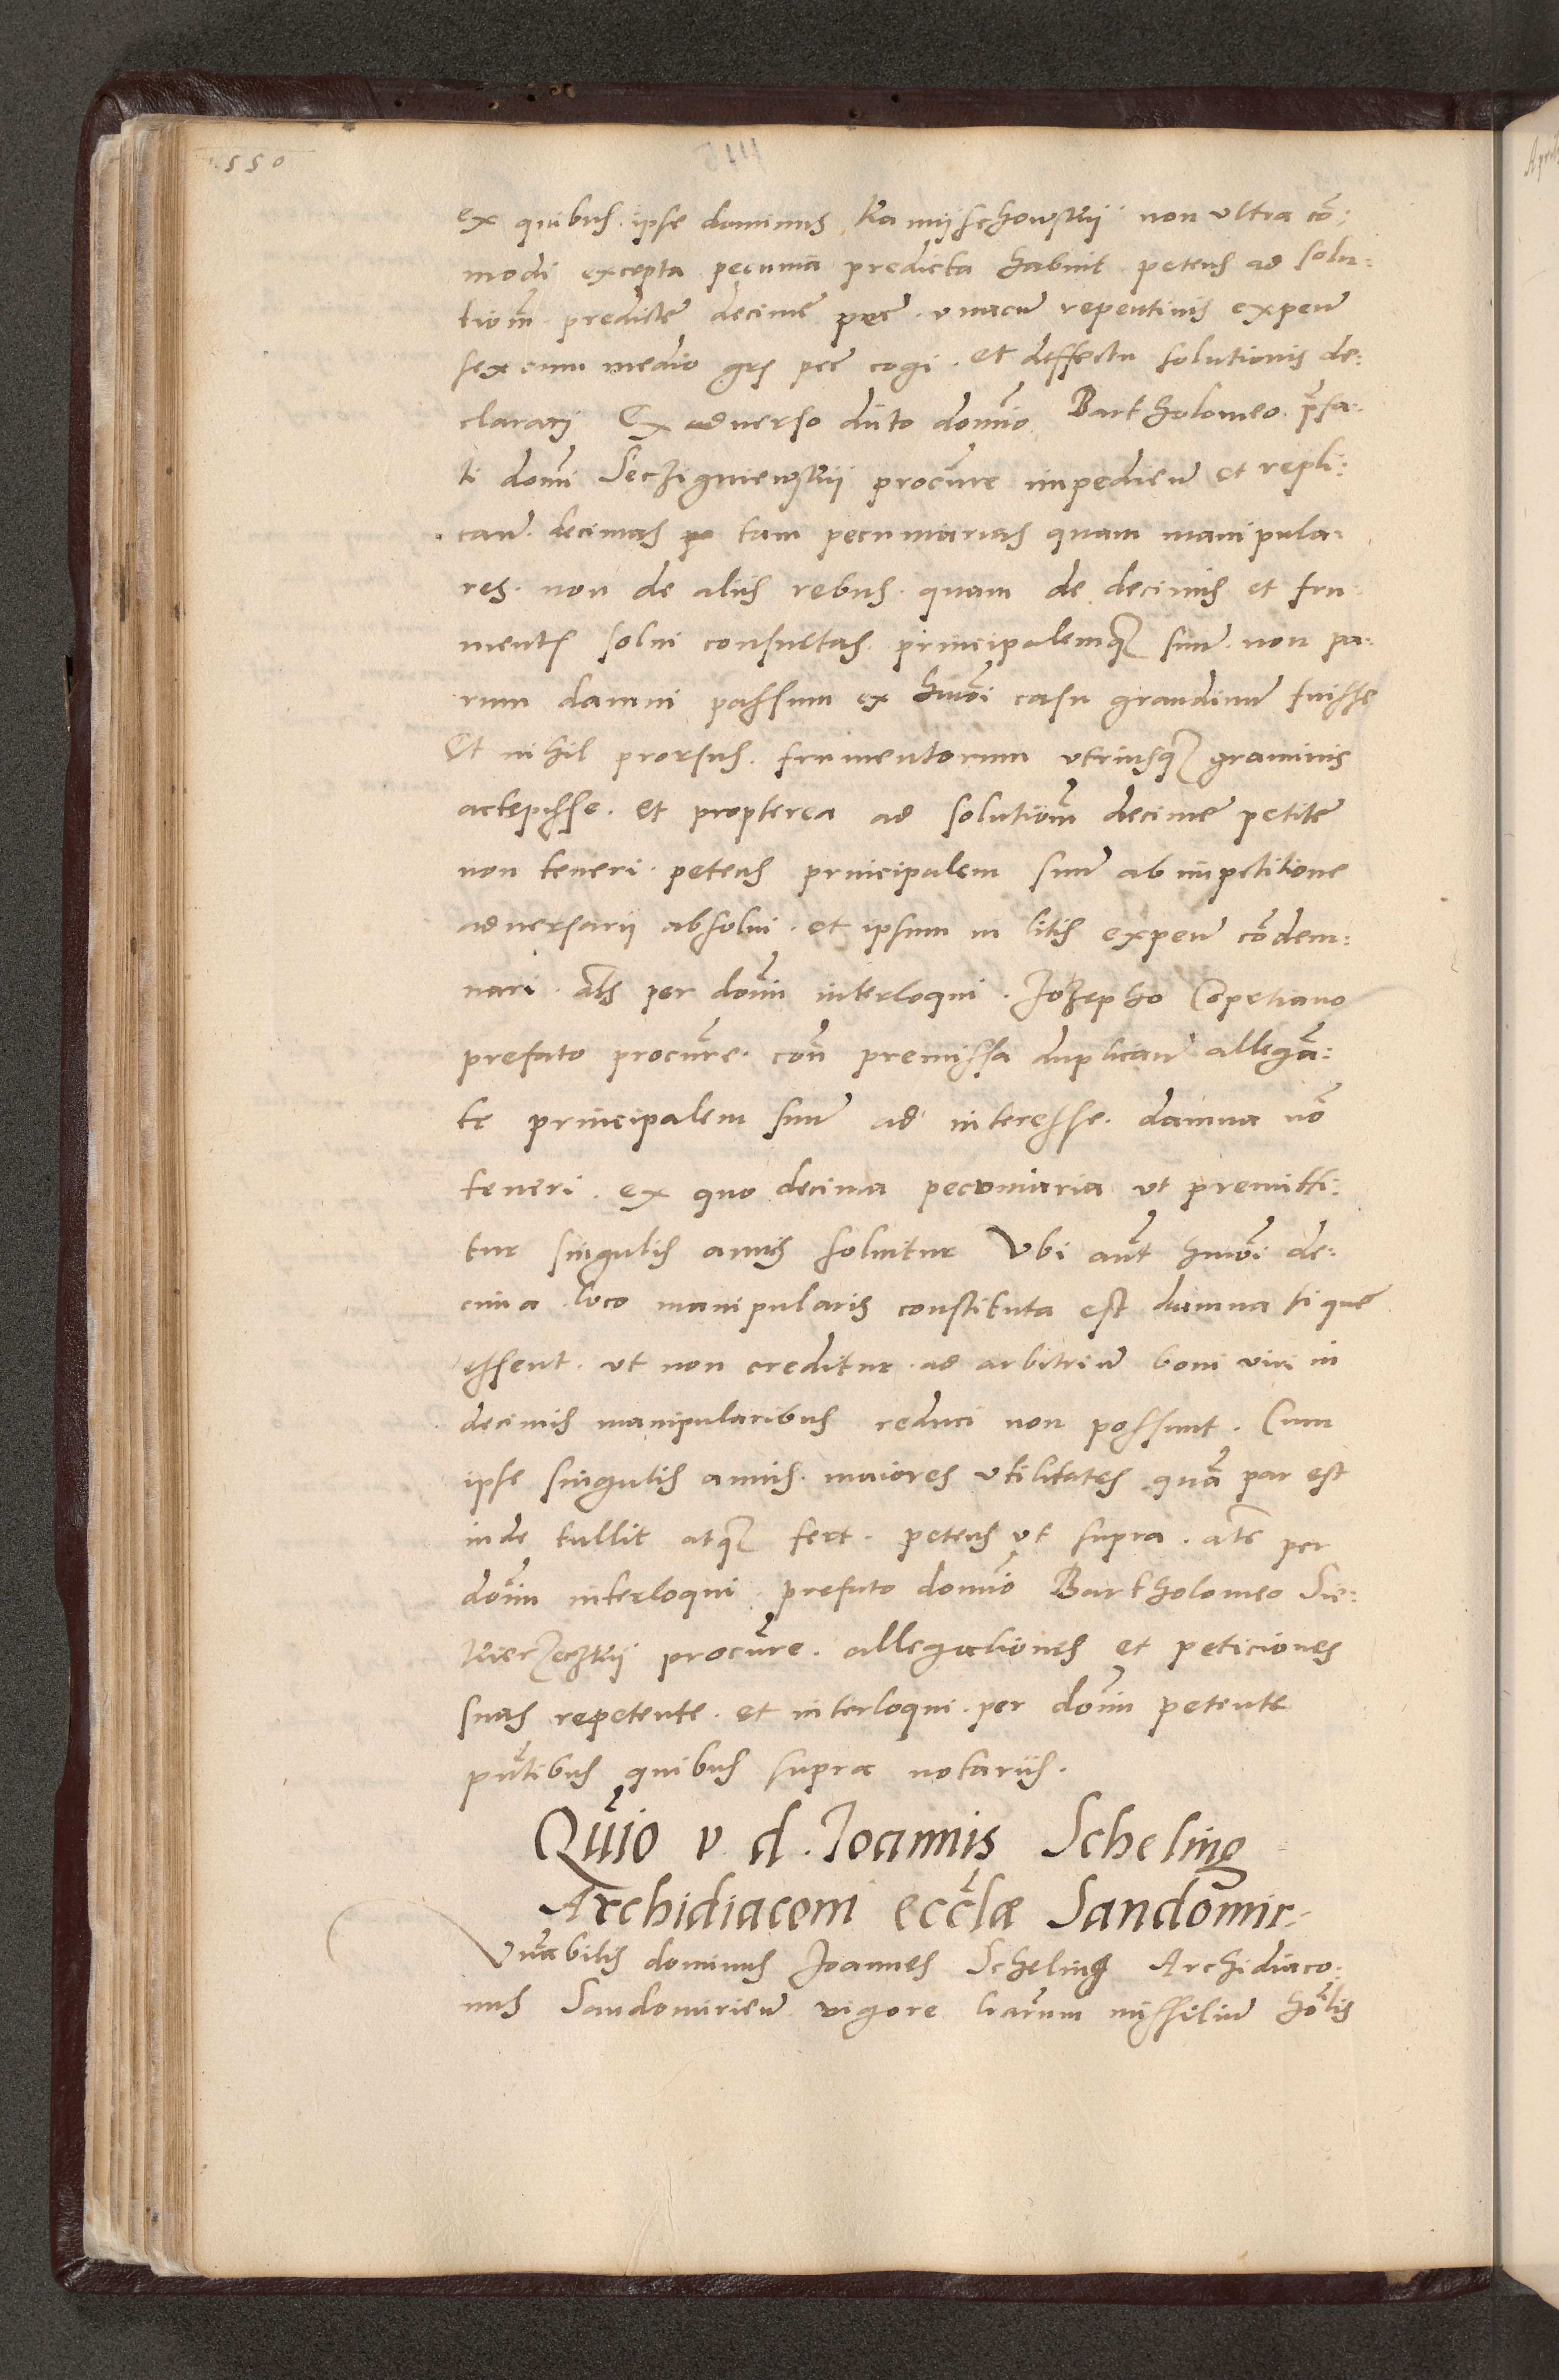 1550
ex quibus ipse dominus Kamijschowskij non ultra cō:
modi excepta pecunia predicta habuit petens ad solu:
tiom̄ predictē decimē unacū repentinis expeñ
sex cum medio grs pet cogi. et deffectu solutionis de:
clararj Ex adverso dn̄to domn̄o Bartholomeo p̄fa:
ti domn̄i procure impedieñ et repli:
cañ decimas tam pecuniarias quam manipula:
res. non de aliis rebus. quam de decimis et fru:
mentis solui consuetas. principalemq suū non pa:
rum damni passum ex hmōi casu grandinū fuisse
Et nihil prorsus. frumentorum utriusq graminis
accepisse. et propterea ad solutiom̄ decimē petitē
non teneri. petens principalem suū ab impetitione
adversarij absolui. et ipsum in litis expeñ cōdem:
nari. als per dom̄ interloqui. Jozepho Copetiano
prefato procūre. con̄ premissa duplicañ allegā:
te principalem suū ad interesse. damna nō
teneri. ex quo decima pecuniaria ut premitti:
tur singulis annis soluitur Vbi aūt hmōi de:
cima loco manipularis constituta est damna si quē
essent. ut non creditur. ad arbitriū boni viri in
decimis manipularibus reduci non possunt. Cum
ipse singulis annis. maiores utilitates quā par est
inde tullit atq fert. petens ut supra. als per
dom̄ interloqui prefato domn̄o Bartholomeo Sie:
procūre. allegationes et peticiones
suas repetente. et interloqui. per dom̄ petente
pn̄tibus quibus supra notariis.
Qūio v d. Joannis Scheling
Archidiaconi eccl̄æ Sandomir:
Vn̄abilis dominus Joannes Scheling Archidiaco:
nus Sandomirieñ vigore lrārum missiliū hōlis